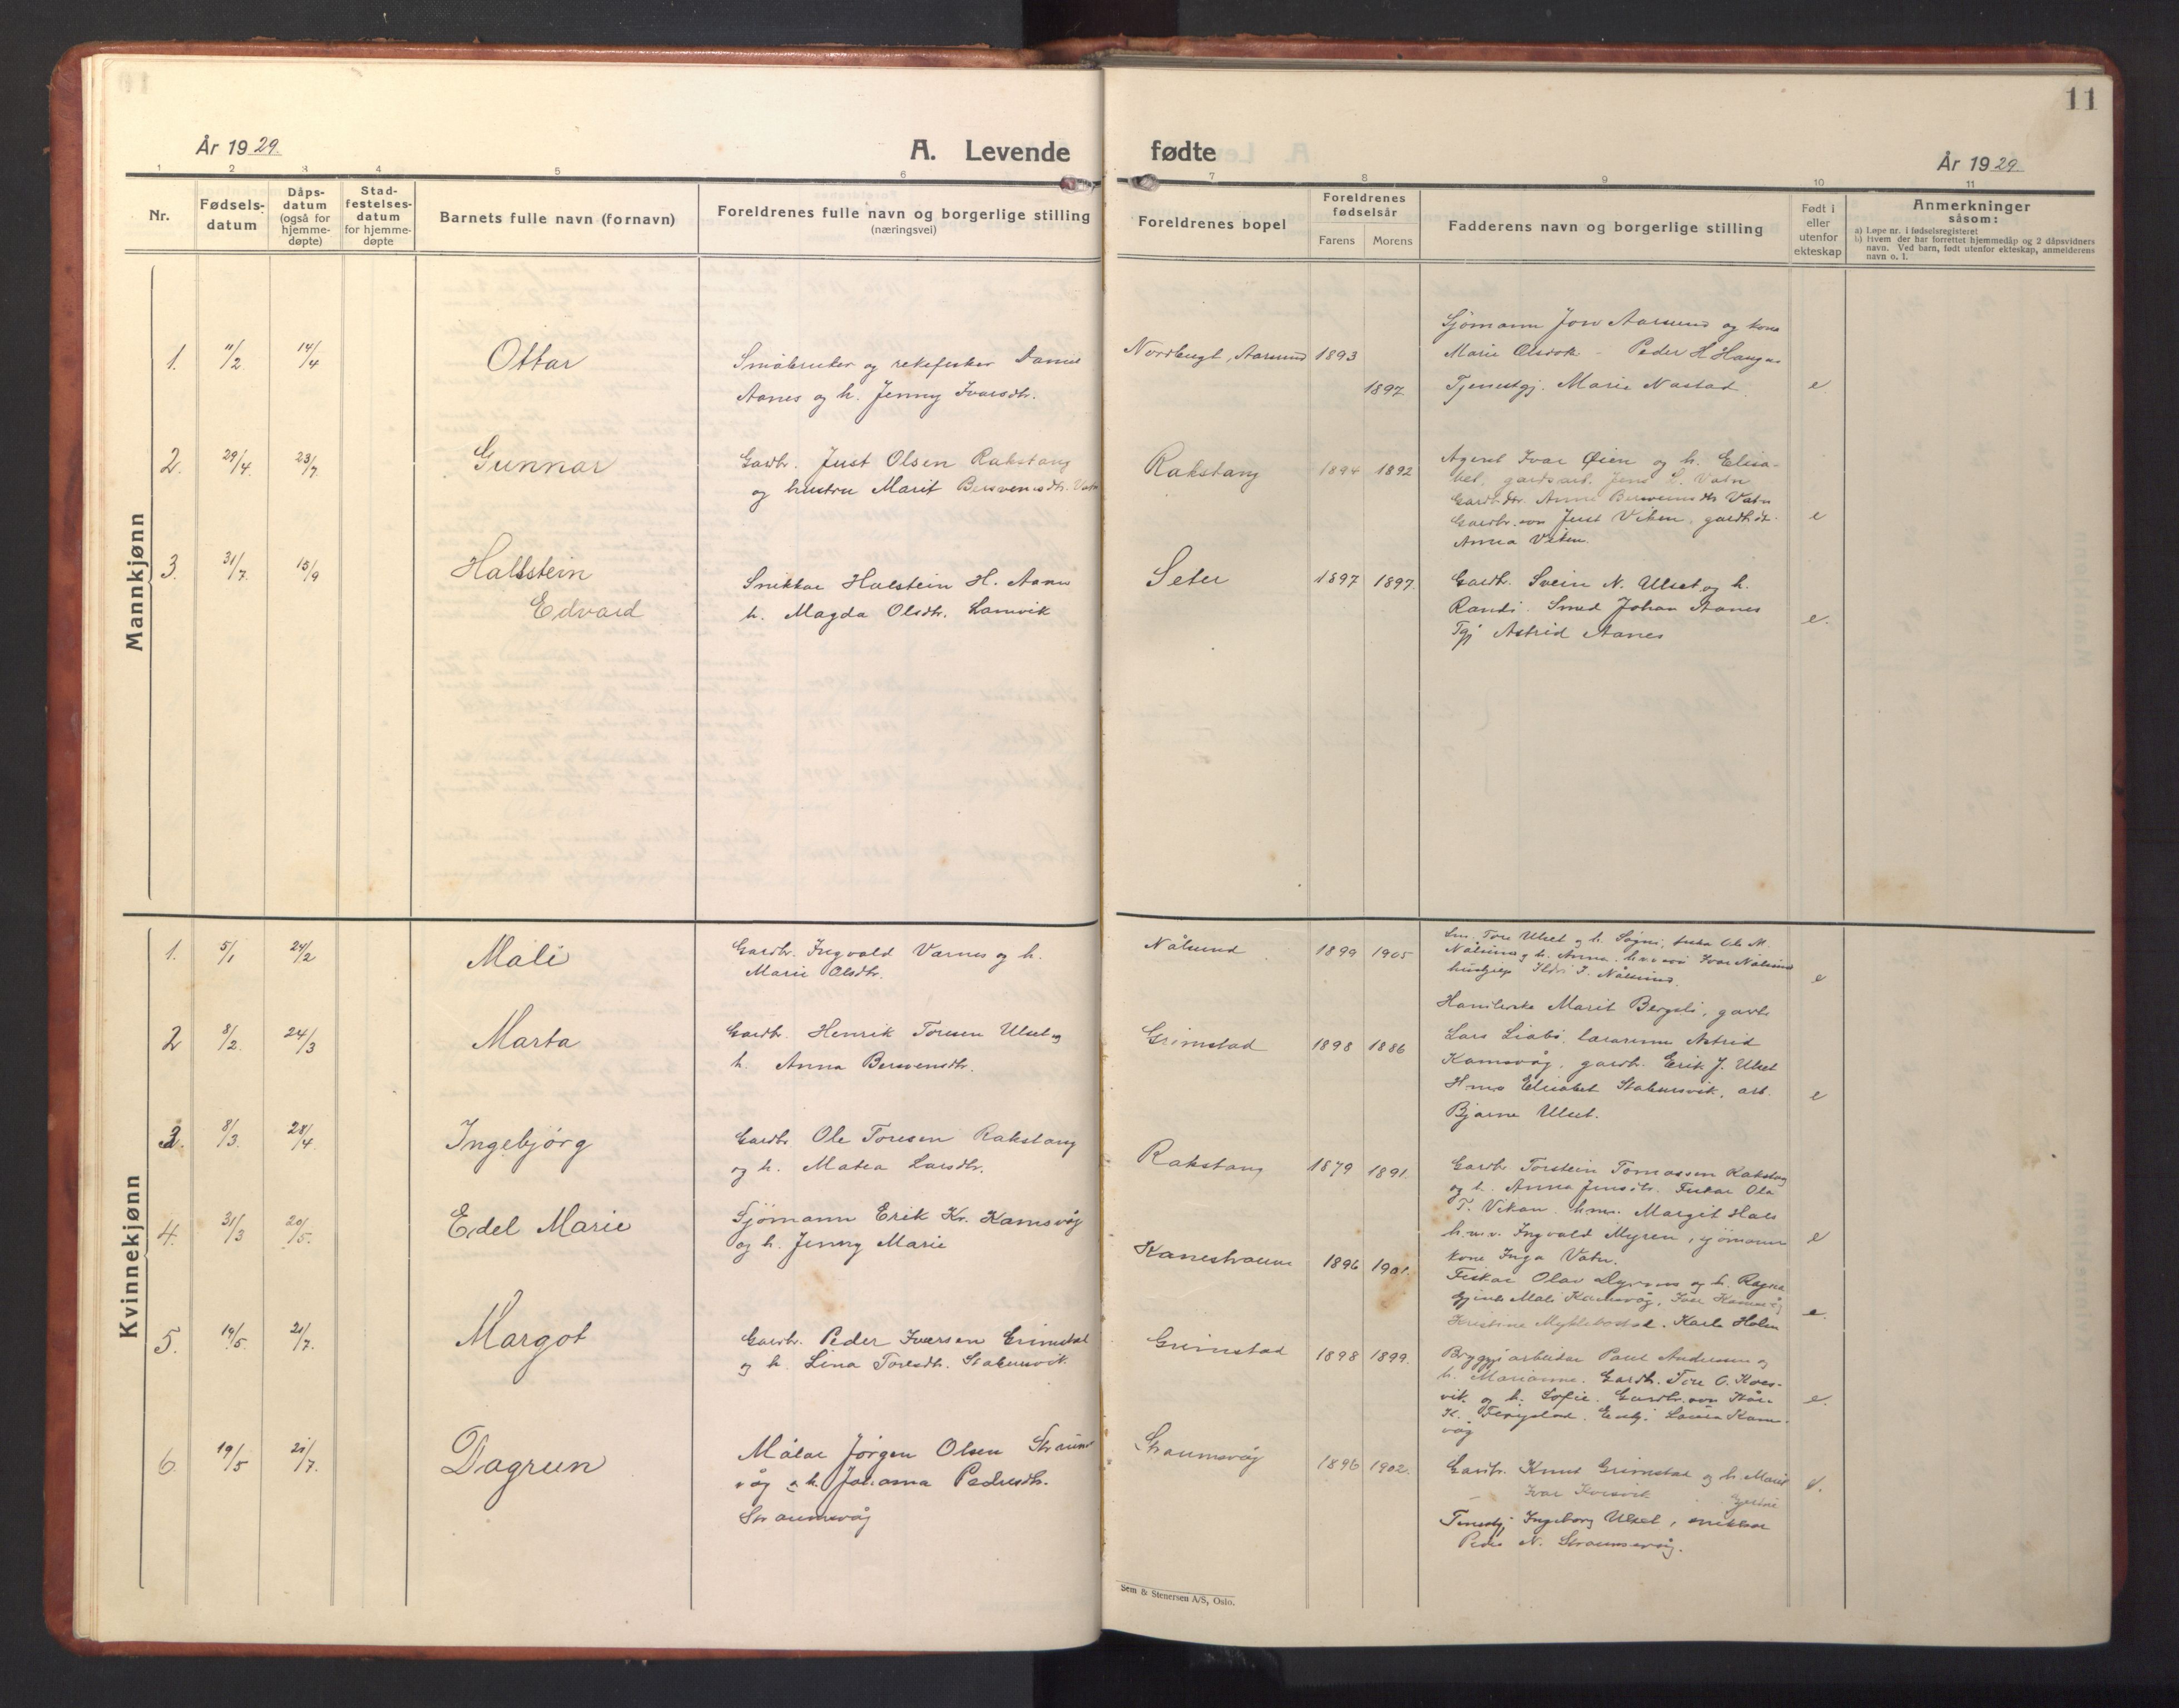 11
År 1929.
A. Levende fødte
År 1929
1 2 3 4 5 6 7 8 9 10 11
Nr.
Fødsels-
datum
Dåps-
datum
(også for
hjemme-
døpte)
Stad-
festelses-
datum
for hjemme-
døpte
Barnets fulle navn (fornavn)
Foreldrenes fulle navn og borgerlige stilling
(næringsvei)
Foreldrenes bopel
Foreldrenes
fødselsår
Farens Morens
Fadderens navn og borgerlige stilling
Født i
eller
utenfor
ekteskap
Anmerkninger
såsom:
a) Løpe nr. i fødselsregisteret
b) Hvem der har forrettet hjemmedåp og 2 dåpsvidners
navn. Ved barn, født utenfor ekteskap, anmelderens
navn o. l.
Mannkjønn
1. 11/2 14/4 Ottar
Småbruker og rekefisker Daniel
Aanes og h. Jenny Ivarsdtr.
Nordbugt, Aarsund 1893
1897
Sjömann Jon Aarsund og kone
Marie Olsvik - Peder H Haugen
Tjenestgj. Marie Nastad e
2. 29/4. 23/7. Gunnar
Gardbr. Just Olsen Rakstang
og hustru Marit Bersvensdtr. Vatn
Rakstang 1894 1892
Agent Ivar Øien og h. Elisa-
bet, gardsarb. Jens L. Vatn
Gardb.dtr. Anne Bersvensdtr Vatn
Gardbr. son Just Viken, gardb.dtr.
Anna Viken. e
3. 31/7. 15/9 Hallstein
Edvard
Snekkar Halstein H. Aanes
h. Magda Olsdtr. Lamvik
Seter 1897 1897.
Gardbr. Svein N. Ulset og h.
Randi. Smed Johan Aanes
Tgj Astrid Aanes e.
Kvinnekjønn
1. 5/1 24/2 Mali
Gardbr. Ingvald Varnes og h.
Marie Olsdtr.
Nålsund 1899 1905
Tore Ulset og h. Ole M.
Nålsund og h. Anna, Ivar Nålsund
Ildri I. Nålsund. e
2 8/2. 24/3 Marta
Gardbr. Henrik Toresen Ulset og
h. Anna Bersvensdtr.
Grimstad 1898 1886
Marit Bergeli, gardbr
Lars Liabö, lærarinne Astrid
Kamsvåg, gardb. Erik J. Ulset
Elisabet Stabursvik, arb.
Bjarne Ulset. e
3. 8/3. 28/4 Ingebjörg
Gardbr Ole Toresen Rakstang
og h. Matea Larsdtr.
Rakstang 1879 1891.
Gardbr Torstein Tomassen Rakstang
og h. Anna Jensdtr. Fiskar Ola
T. Vikan. Margit Hals
Ingvald Myren, sjömann
kone Inga Vatn. e
4. 31/3 20/5. Edel Marie
Sjömann Erik Kr. Kamsvåg
og h. Jenny Marie
Kanestraum 1896 1901.
Fiskar Olav Dyrnes og h. Ragna
Mali Kamsvåg, Kamsvåg
Kristine Myklebostad. Karla Holen e.
5. 19/5. 21/7. Margot
Gardbr. Peder Iversen Grimstad
og h. Lina Toresdtr. Stabursvik
Grimstad 1898 1899.
Bryggjiarbeidar Paul Andersen og
h. Marianne. Gardb. Tore O. Kors-
vik og h. Sofie. Gardbr.son
K. Lovisa Kams-
våg e.
6. 19/5 21/7. Dagrun
Målar Jørgen Olsen Straums-
våg og h. Johanna Pedersdtr.
Straumsvåg
Straumsvåg 1896 1902.
Gardbr. Knut Grimstad og h. Marit
Ivar Korsvik
Tenestgj Ingeborg Ulset, snikkar
Peder N. Straumsvåg. e.
Sem & Stenersen A/S, Oslo.